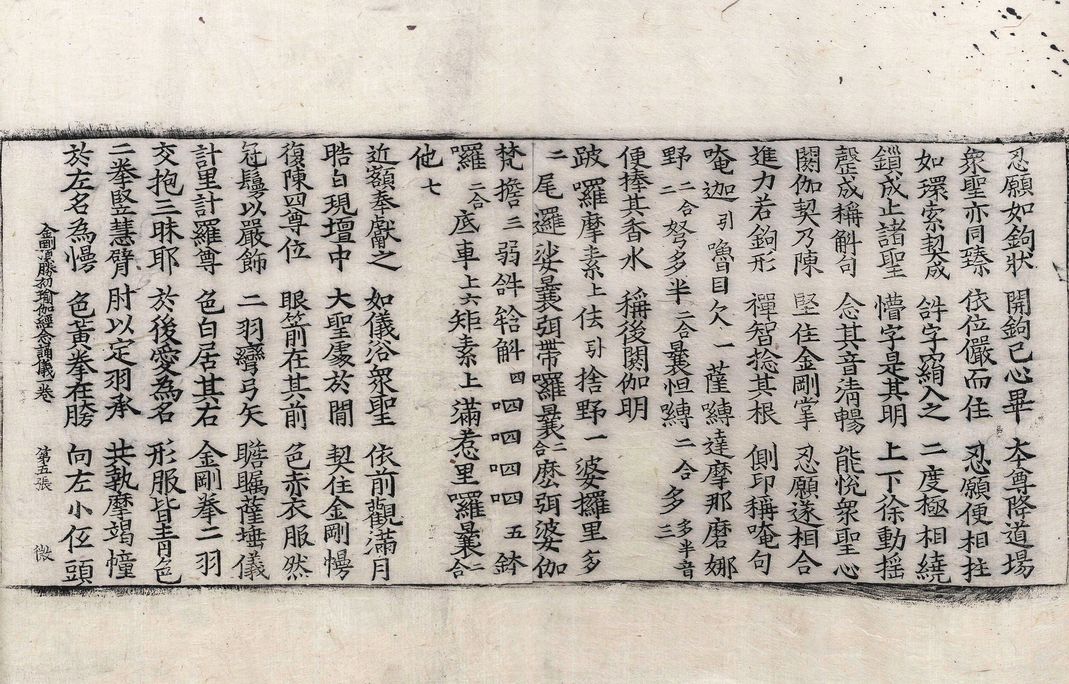 忍願如鉤狀 開鉤己心畢 本尊降道場
衆聖亦同臻 依位儼而住 忍願便相拄
如環索契成 䛠字窮絹入之 二度極相繞
鎖成止諸聖 懵字是其明 上下徐動揺
罄成稱斛句 念其音淸暢 能悅衆聖心
閼伽契乃陳 堅住金剛掌 忍願遂相合
進力若鉤形 禪智捻其根 側印稱唵句
唵迦引嚕目欠一薩縛達摩那磨娜
野二合二弩多半二合曩怛縛二合多多半音三
便捧其香水 稱後閼伽明
跛囉摩素上佉引捨野一婆攞里多
二尾邏娑曩弭帶囉曩二合麽弭婆伽
梵擔三弱䛠鋡斛四呬呬呬呬五鉢
囉二合底車上六矩素上滿惹里囉曩二合
他七
近額奉獻之 如儀浴衆聖 依前觀滿月
晧白現壇中 大聖處於閒 契住金剛慢
復陳四尊位 眼箭前在其前 色赤衣服然
冠鬘以嚴飾 二羽彎弓矢 瞻矚薩埵儀
計里計羅尊 色白居其右 金剛拳二羽
交抱三昧耶 於後愛為名 形服皆靑色
二拳竪慧臂 肘以定羽承 共執摩竭幢
於左名為慢 色黃拳在胯 向左小低頭
金剛頂勝初瑜伽經念誦儀一卷 第五張 微